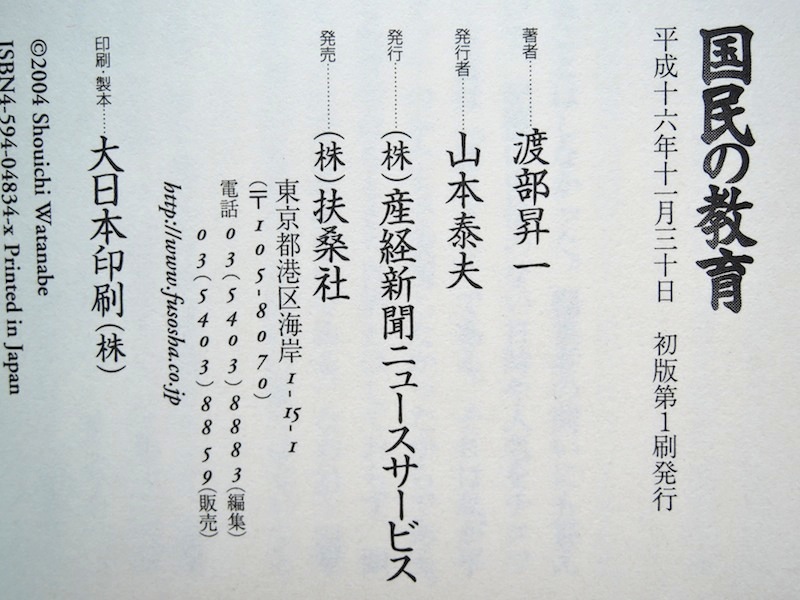 国民の教育
平成十六年十一月三十日　初版第1刷発行
著者…………渡部昇一
発行者…………山本泰夫
発行…………(株)産経新聞ニュースサービス
発売…………(株)扶桑社
東京都港区海岸1-15-1
(〒105-8070)
電話 03(5403)8883(編集)
03(5403)8859(販売)
http://www.fusosha.co.jp
印刷・製本……大日本印刷(株)
©2004 Shouichi Watanabe
ISBN4-594-04834-x Printed in Japan